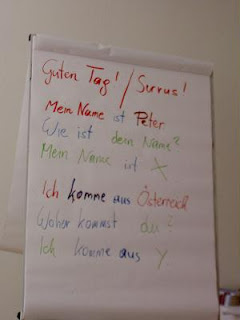 Guten Tag! / Servus!
Mein Name ist Peter
Wie ist dein Name?
Mein Name ist X
Ich komme aus Österreich
Woher kommst du?
Ich komme aus Y